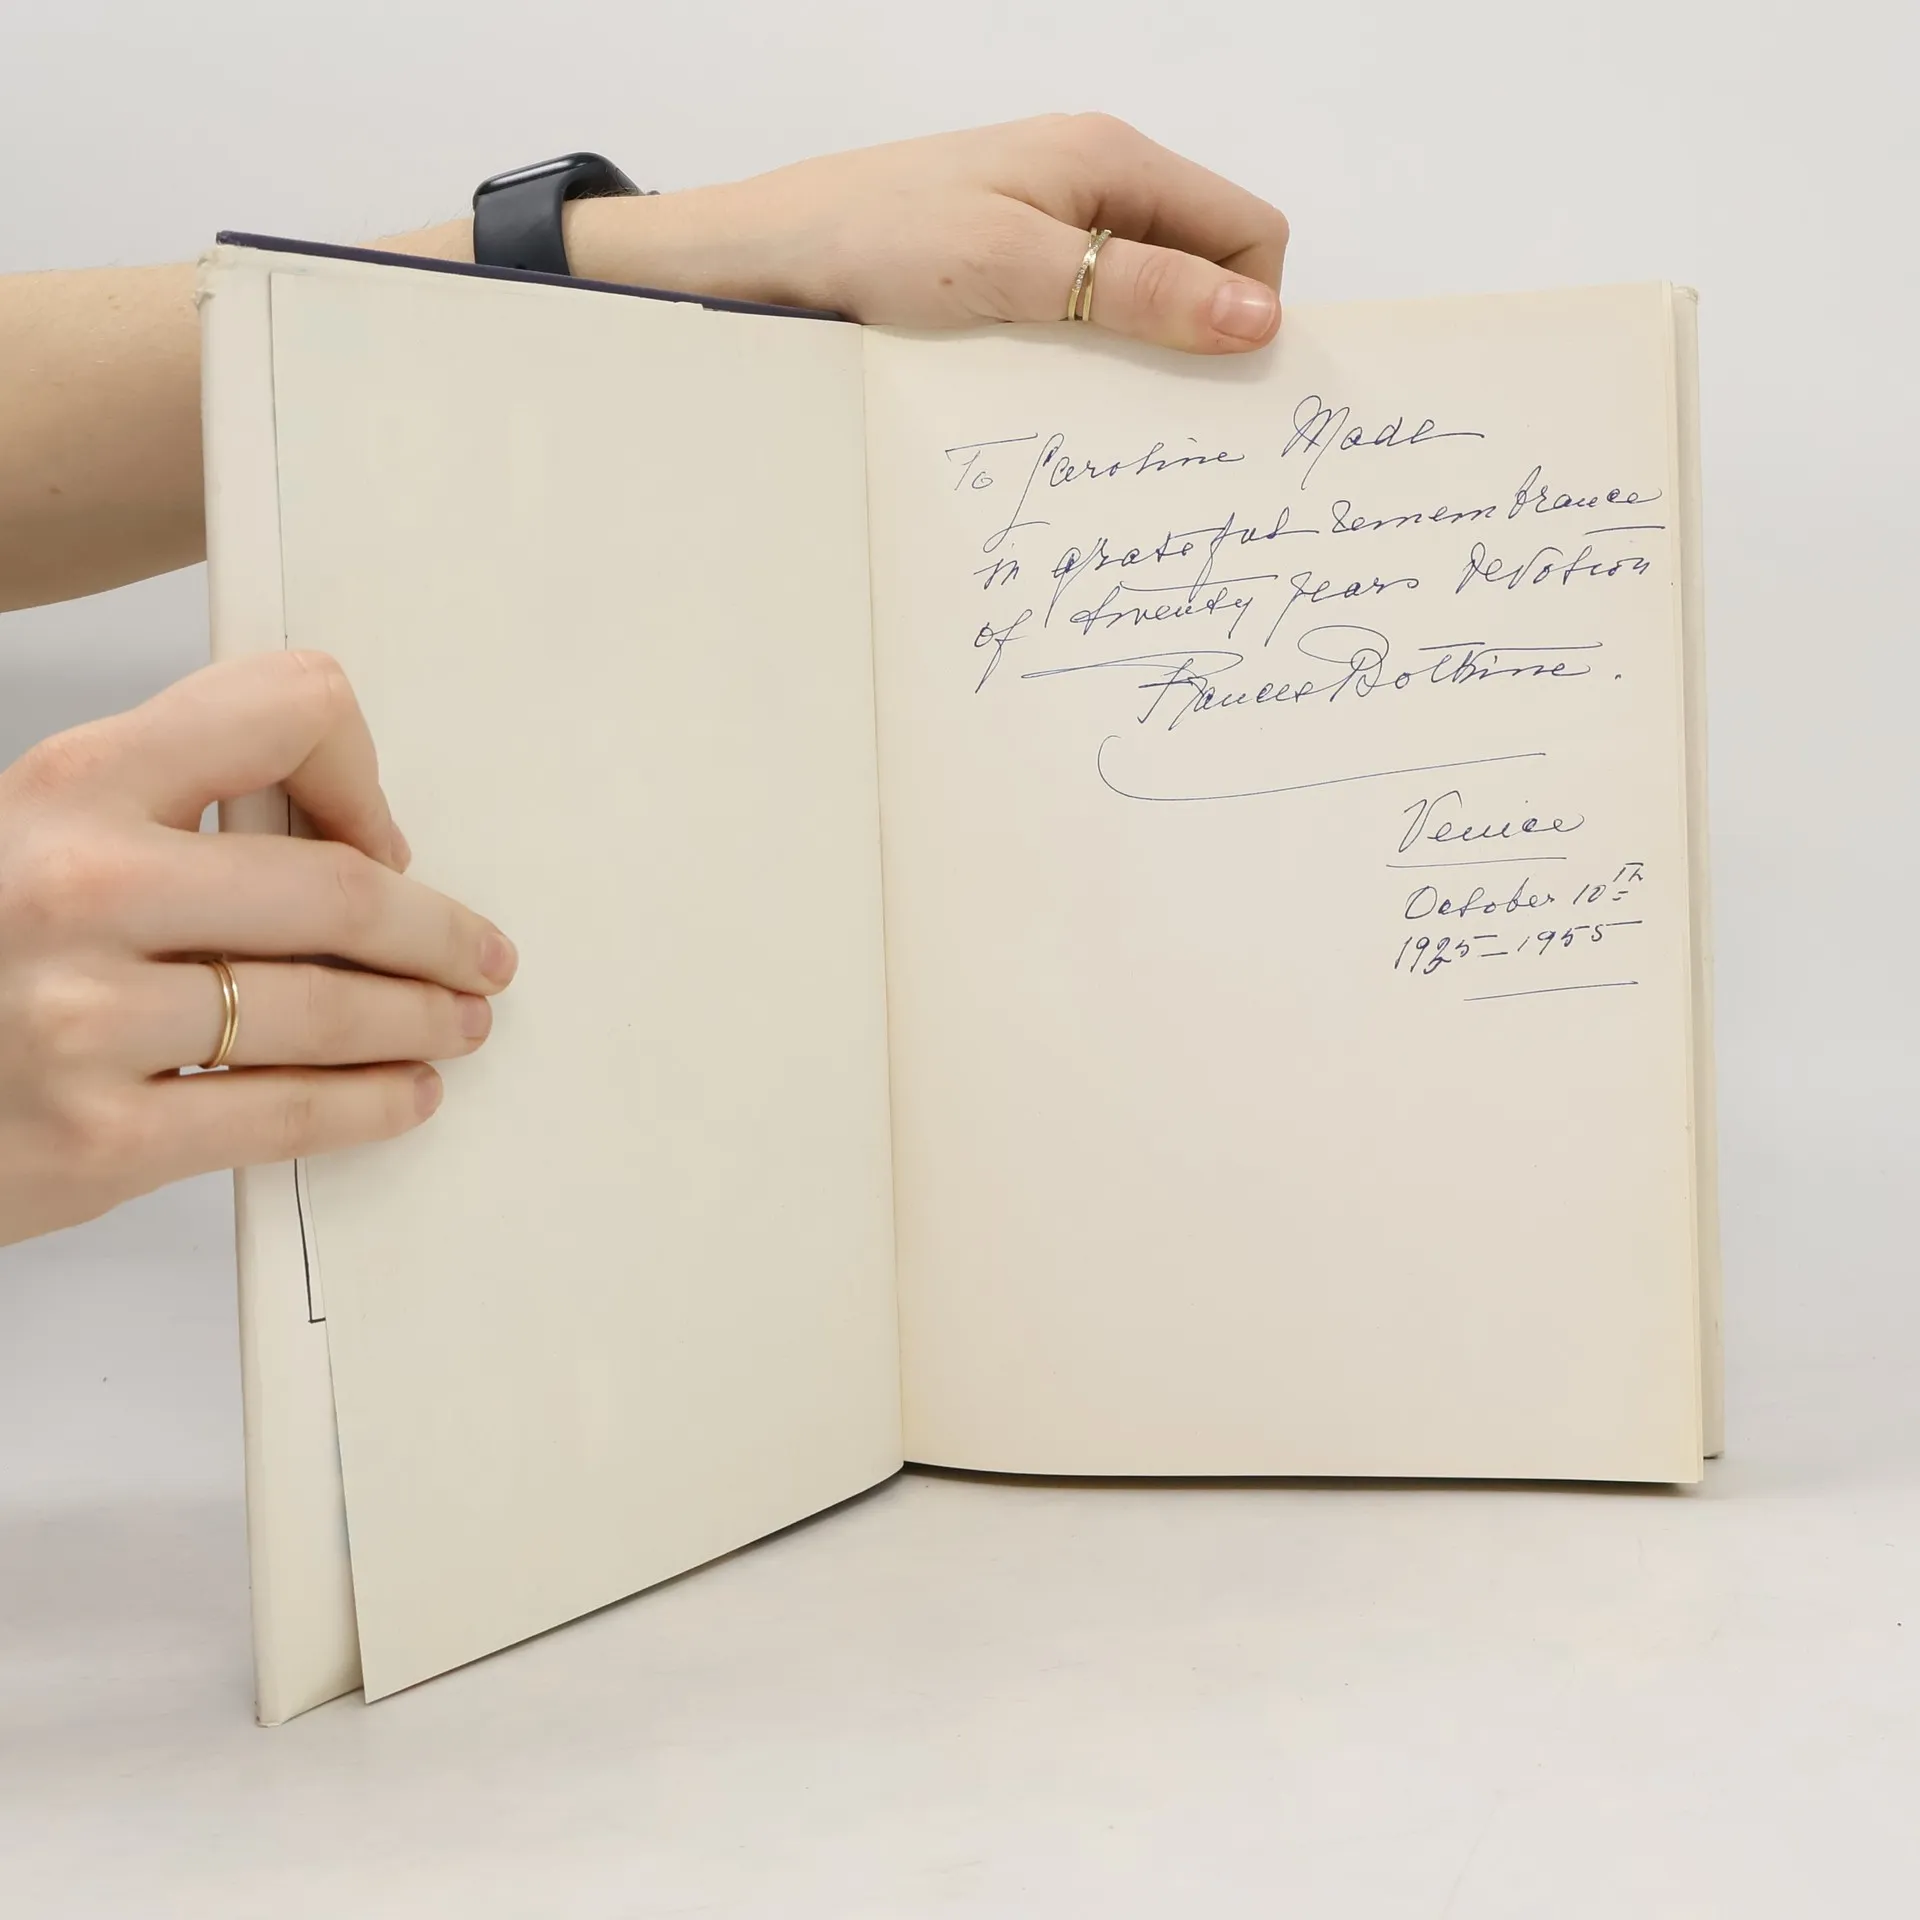 To Caroline Made
in grateful remembrance
of twenty years devotion
Frances Bolthine.
Venice
October 10th
1935–1955